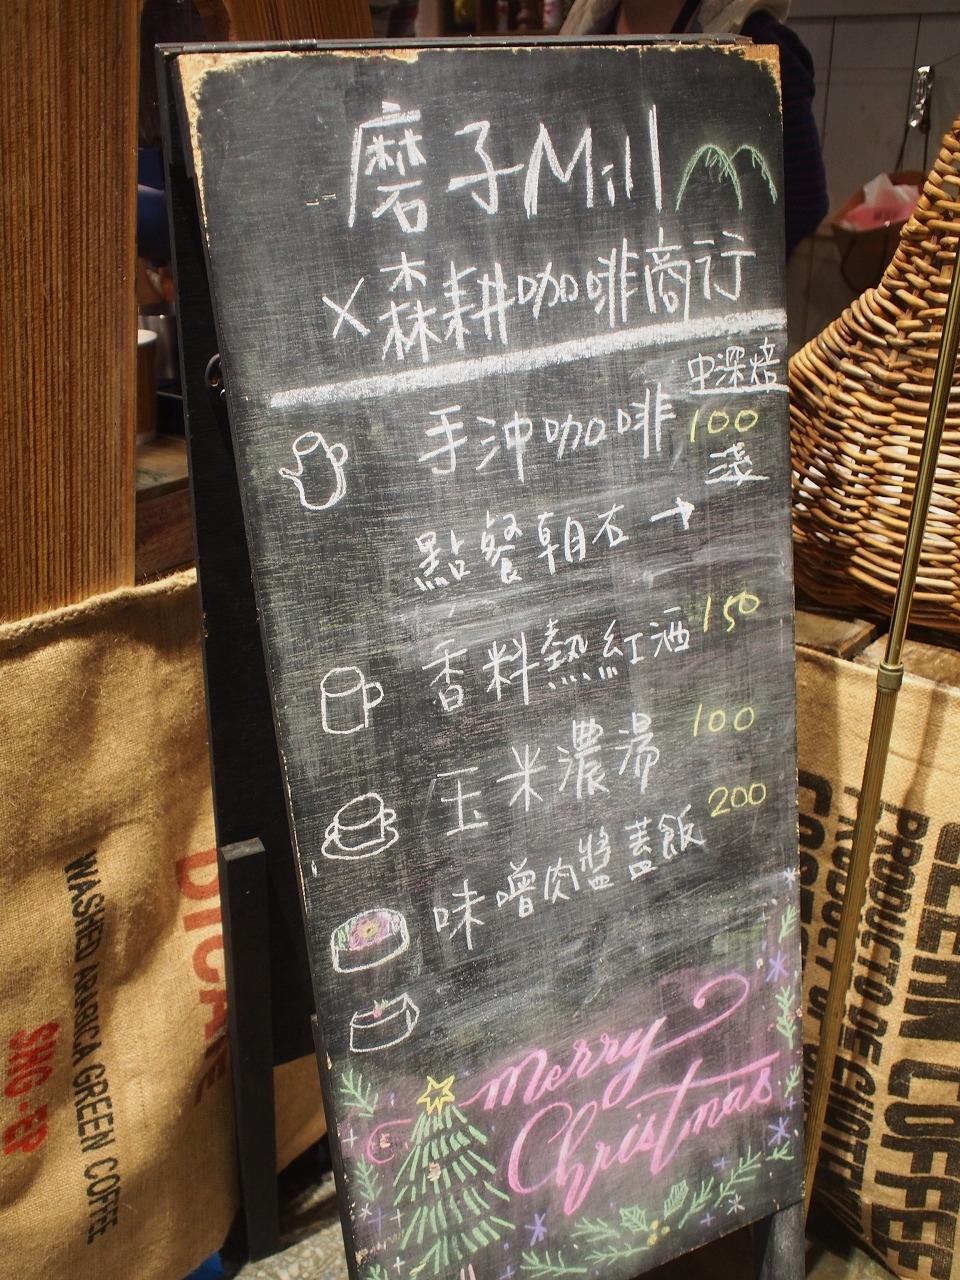 磨子Mill
×森耕咖啡商行
中深焙
手沖咖啡 100
淺
點餐朝右→
香料熱紅酒 150
玉米濃湯 100
味噌肉醬蓋飯 200
Merry
Christmas
WASHED ARABICA GREEN COFFEE
SHG-EP
PRODUCTO DE GUATE
PRODUCT OF
COFFEE